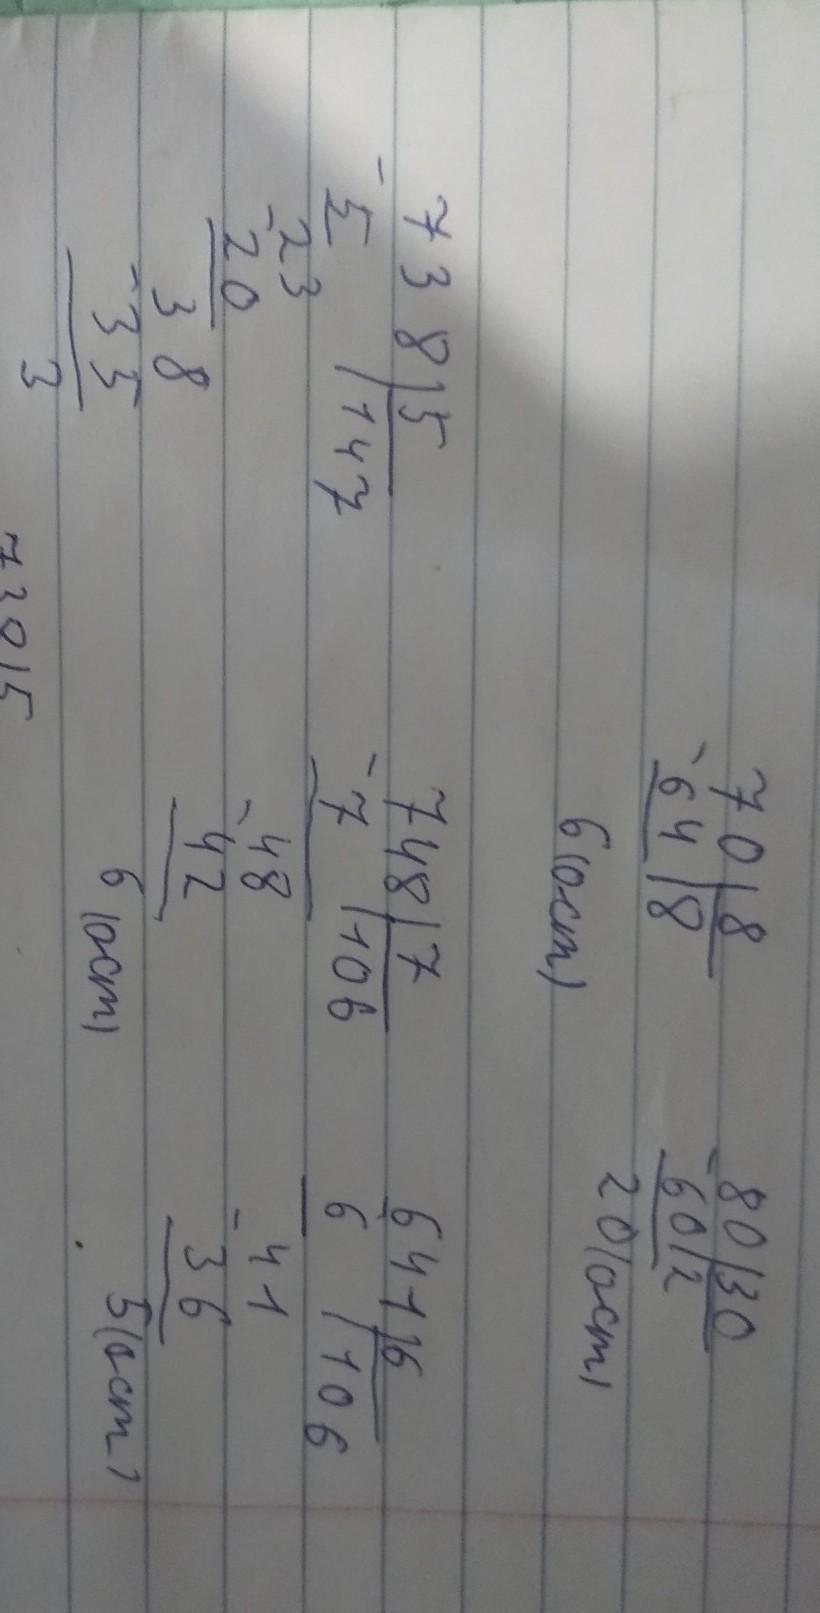 70|8 80|30
-64|8 -60|2
6(ост) 20(ост)
738|5 748|7 641|6
-5 |147 -7 |106 6 |106
-23 -48 -41
20 42 36
38 6(ост) 5(ост)
-35
3
738|5